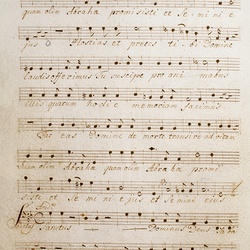 quam olim Abraha promisisti et Semini e
jus Hostias et preces tibi Domine
laudis offerimus tu suscipe pro ani mabus
illis quarum hodie memoriam facimus
Fac eas Domine de morte transire ad vitam
Abrahæ quam olim Abraha promi
siste et Semini ejus et Semini ejus
Sanctus Dominus Deus